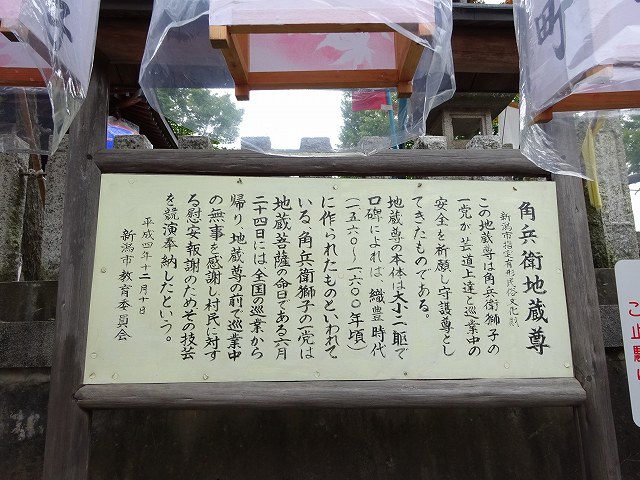 角兵衛地蔵尊
新潟市指定有形民俗文化財
この地蔵尊は角兵衛獅子の
一党が芸道上達と巡業中の
安全を祈願し守護尊とし
てきたものである。
地蔵尊の本体は大小二躯で
口碑によれば、織豊時代
(一五六〇〜一六〇〇年頃)
に作られたものといわれて
いる。角兵衛獅子の一党は
地蔵菩薩の命日である六月
二十四日には全国の巡業から
帰り、地蔵尊の前で巡業中
の無事を感謝し村民に対す
る慰安報謝のためその技芸
を競演奉納したという。
平成四年十二月十日
新潟市教育委員会
町
止